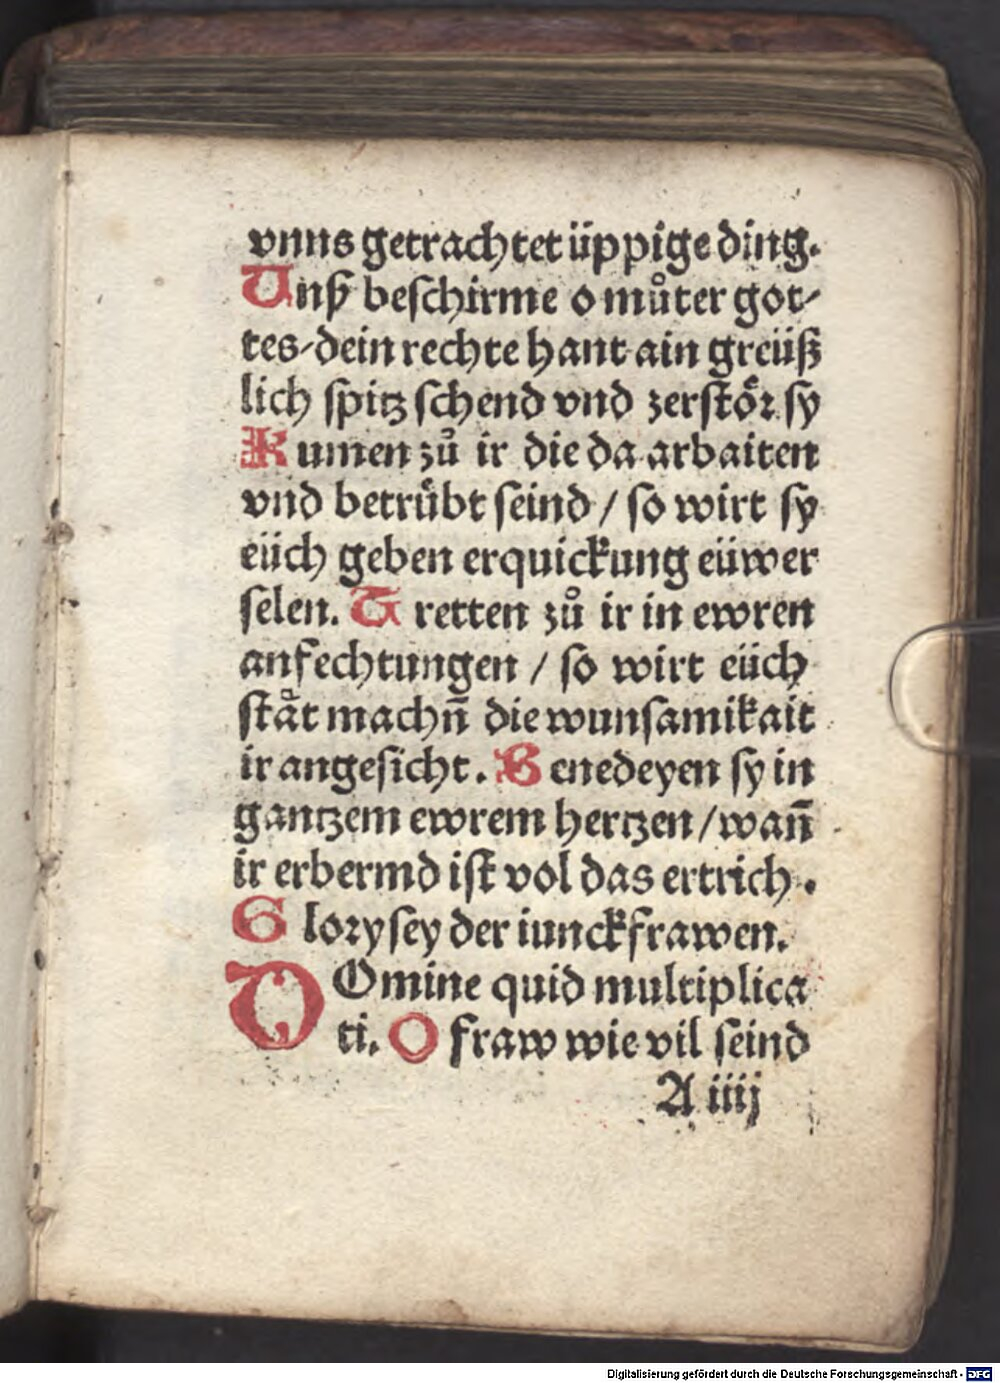 vnns getrachtet üppige ding.
Unſz beſchirme o můter got⸗
tes⸗dein rechte hant ain greüß
lich ſpitz ſchend vnd zerſtoͤꝛ ſy
Kumen zů ir die da arbaiten
vnd betruͤbt ſeind / ſo wirt ſy
eüch geben erquickung eüwer
ſelen. Tretten zů ir in ewren
anfechtungen / ſo wirt eüch
ſtaͤt machñ die wunſamikait
ir angeſicht. Benedeyen ſy in
gantzem ewrem hertzen / wañ
ir erbermd iſt vol das ertrich.
Gloꝛy ſey der iunckfrawen.
DOmine quid multiplica
ti. O fraw wie vil ſeind
A iiij
Digitalisierung gefördert durch die Deutsche Forschungsgemeinschaft - DFG